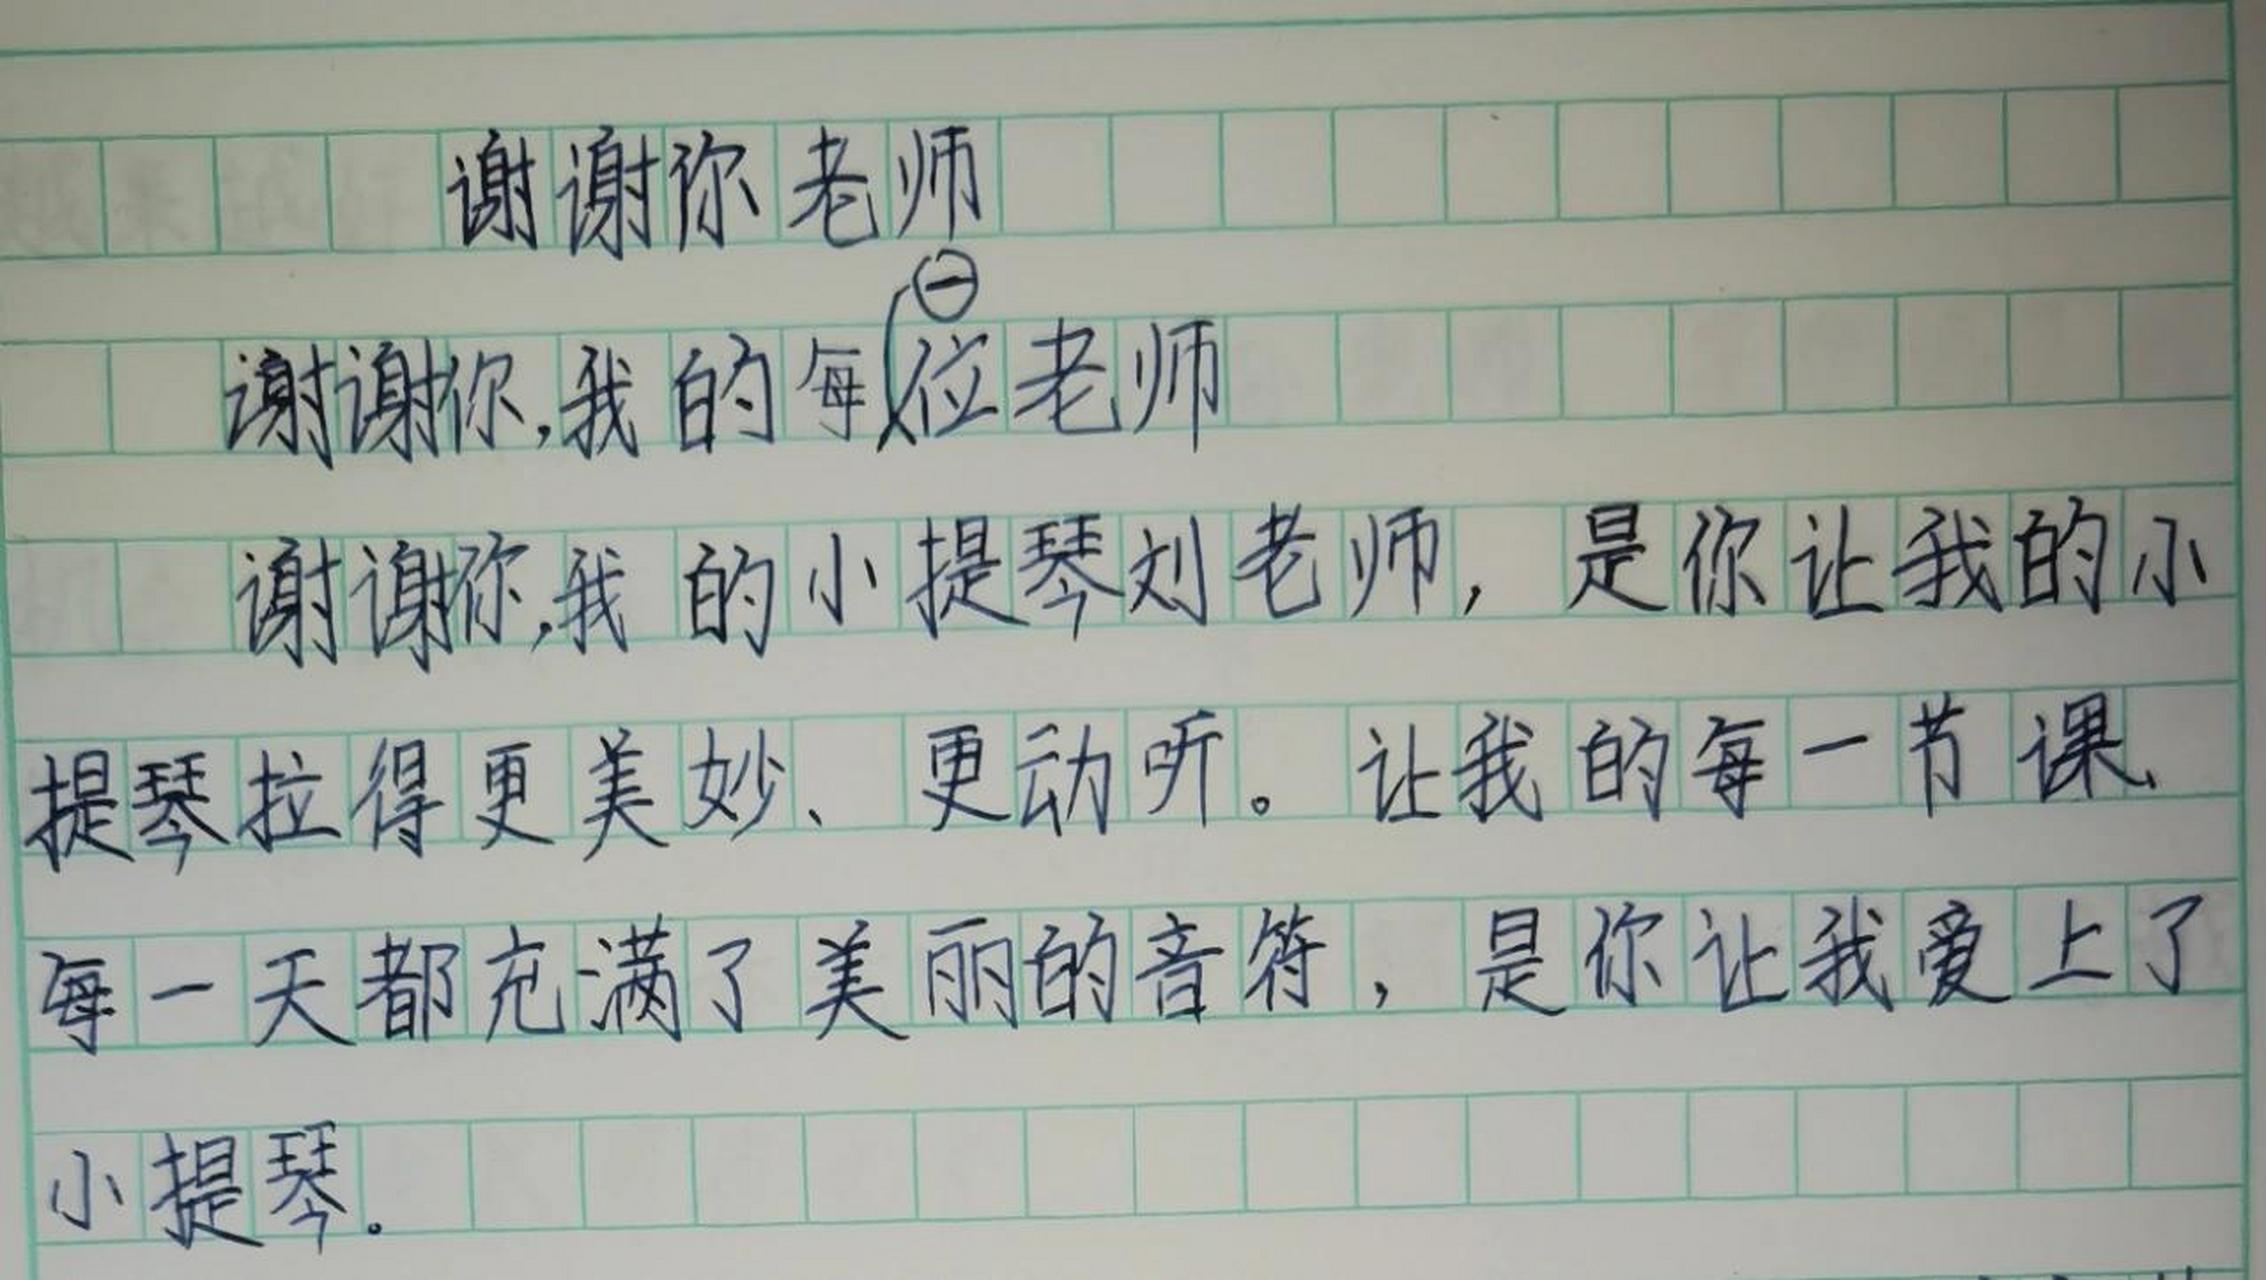 谢谢你老师
谢谢你,我的每一位老师
谢谢你,我的小提琴刘老师,是你让我的小
提琴拉得更美妙、更动听。让我的每一节课、
每一天都充满了美丽的音符,是你让我爱上了
小提琴。